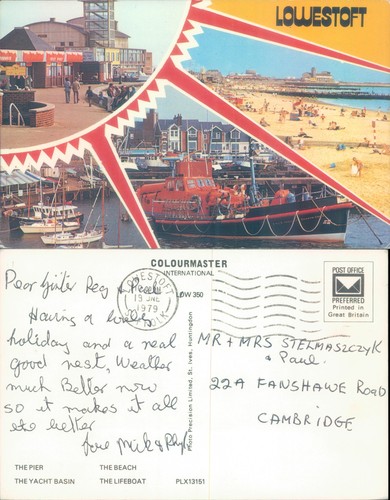 LOWESTOFT
COLOURMASTER
INTERNATIONAL
LOWESTOFT
19 JNE
1979
SUFFOLK
POST OFFICE
PREFERRED
Printed in
Great Britain
Dear Reg & Paul
LDW 350
Having a lovely
holiday and a real
good rest, Weather
much Better now
so it makes it all
the better
love Mick & Phyl
Photo Precision Limited, St. Ives, Huntingdon
MR + MRS STELMASZCZYK
& Paul.
22A FANSHAWE ROAD
CAMBRIDGE
THE PIER THE BEACH
THE YACHT BASIN THE LIFEBOAT PLX13151